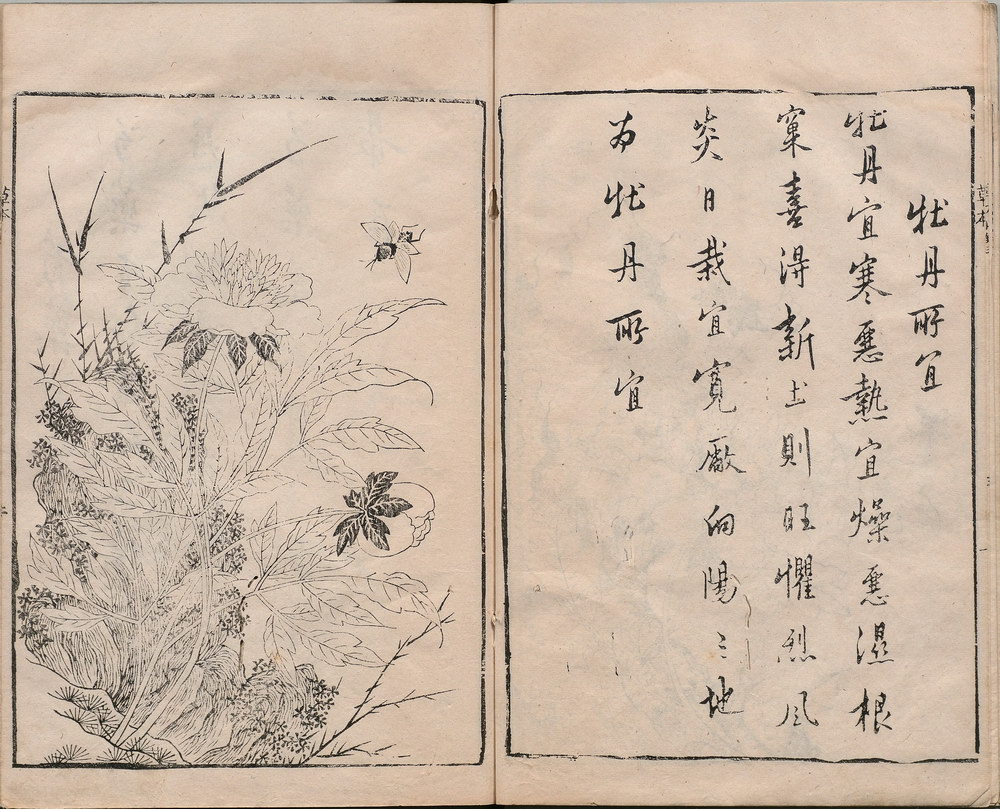 牡丹所宜
牡丹宜寒惡熱宜燥惡濕根
窠喜得新土則旺懼烈風
炎日栽宜寬厰向陽之地
為牡丹所宜
草本